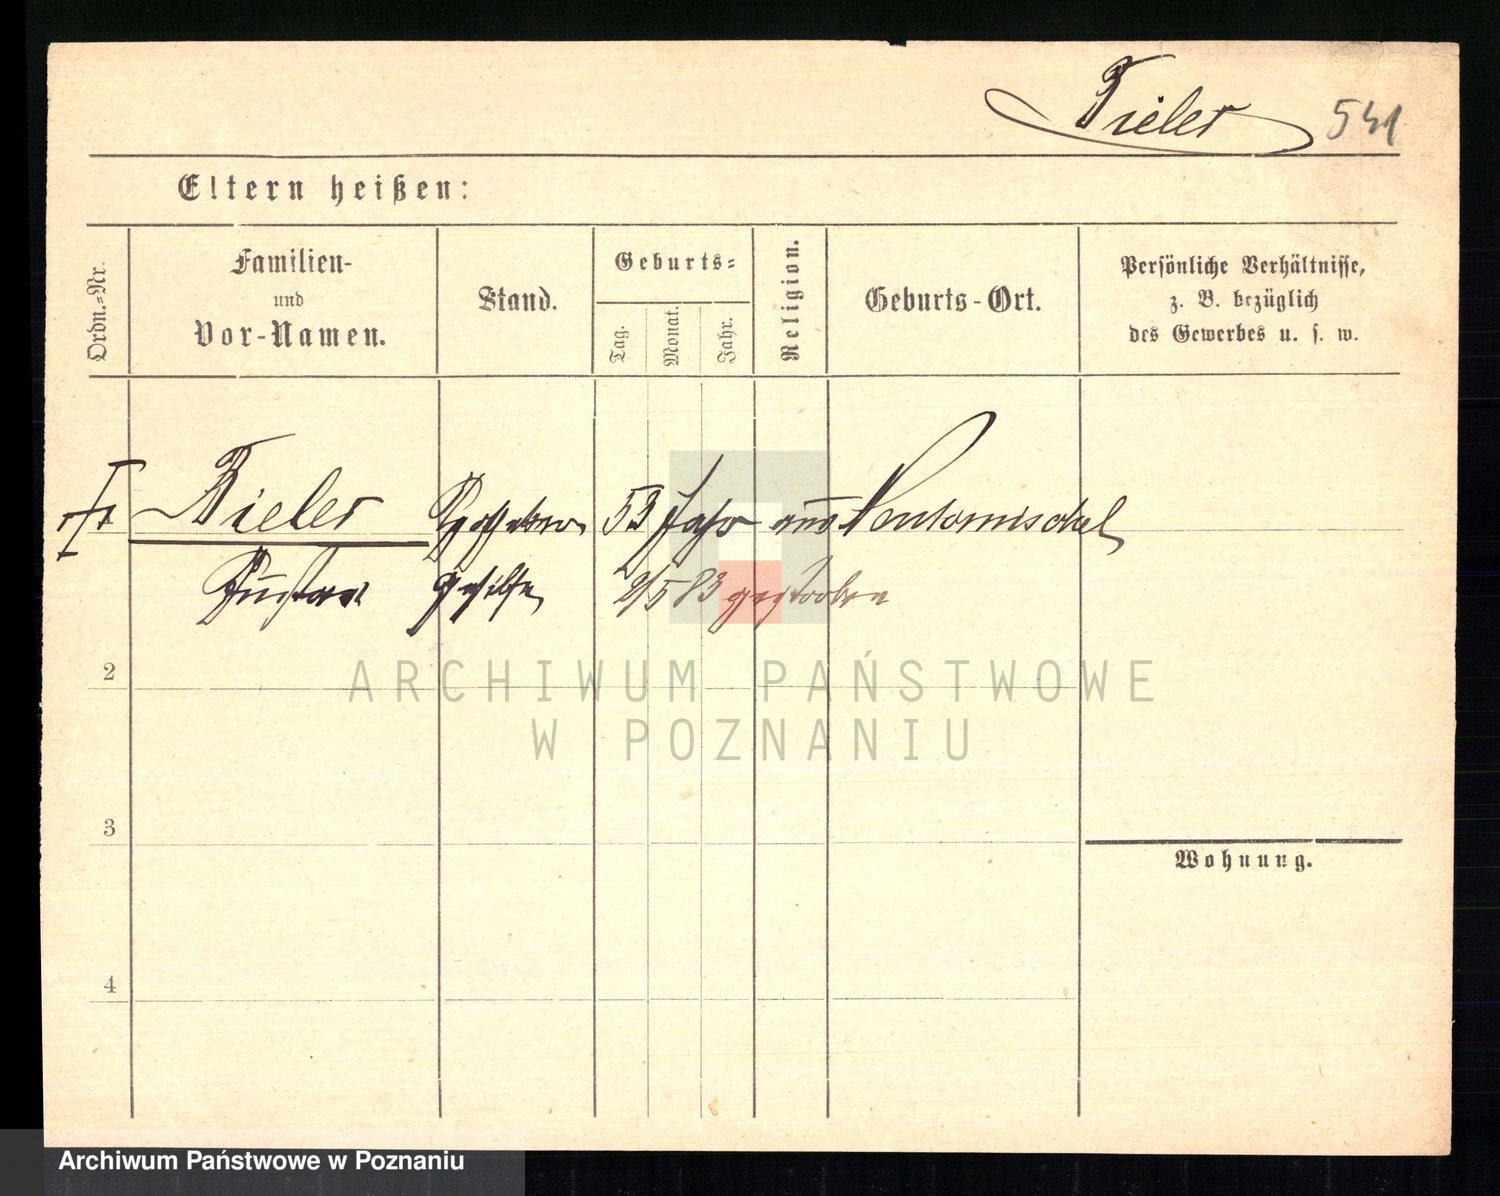 Bieler 541
Eltern heißen:
Ordn.-Nr.
Familien-
und
Vor-Namen.
Stand.
Geburts-
Tag.
Monat.
Jahr.
Religion.
Geburts-Ort.
Persönliche Verhältnisse,
z. B. bezüglich
des Gewerbes u. s. w.
Bieler Apotheker 53 Jahr aus Neutomischel
Gustav Gehilfe 2/5 83 gestorben
2
3
4
Wohnung.
ARCHIWUM PAŃSTWOWE
W POZNANIU
Archiwum Państwowe w Poznaniu